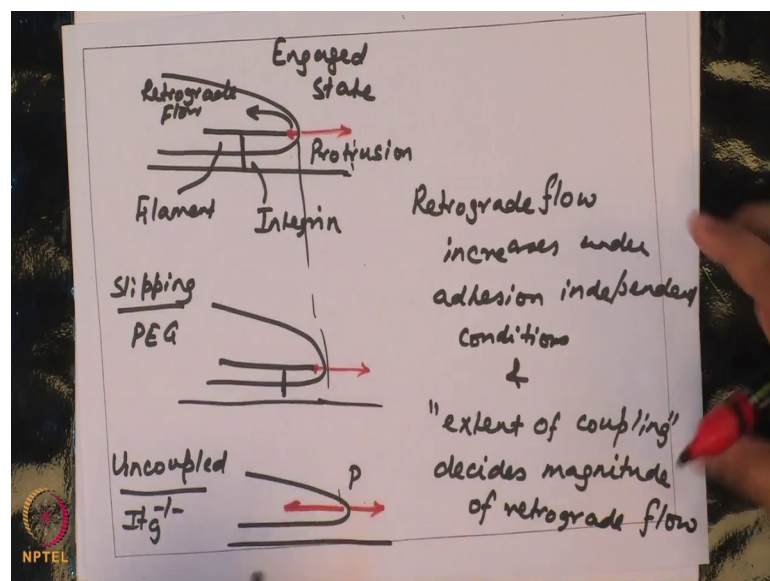 Engaged
State
Retrograde
Flow
Protrusion
Filament
Integrin
Slipping
PEG
Uncoupled
Itg-/-
P
Retrograde flow
increases under
adhesion independent
conditions
&
"extent of coupling"
decides magnitude
of retrograde flow
NPTEL